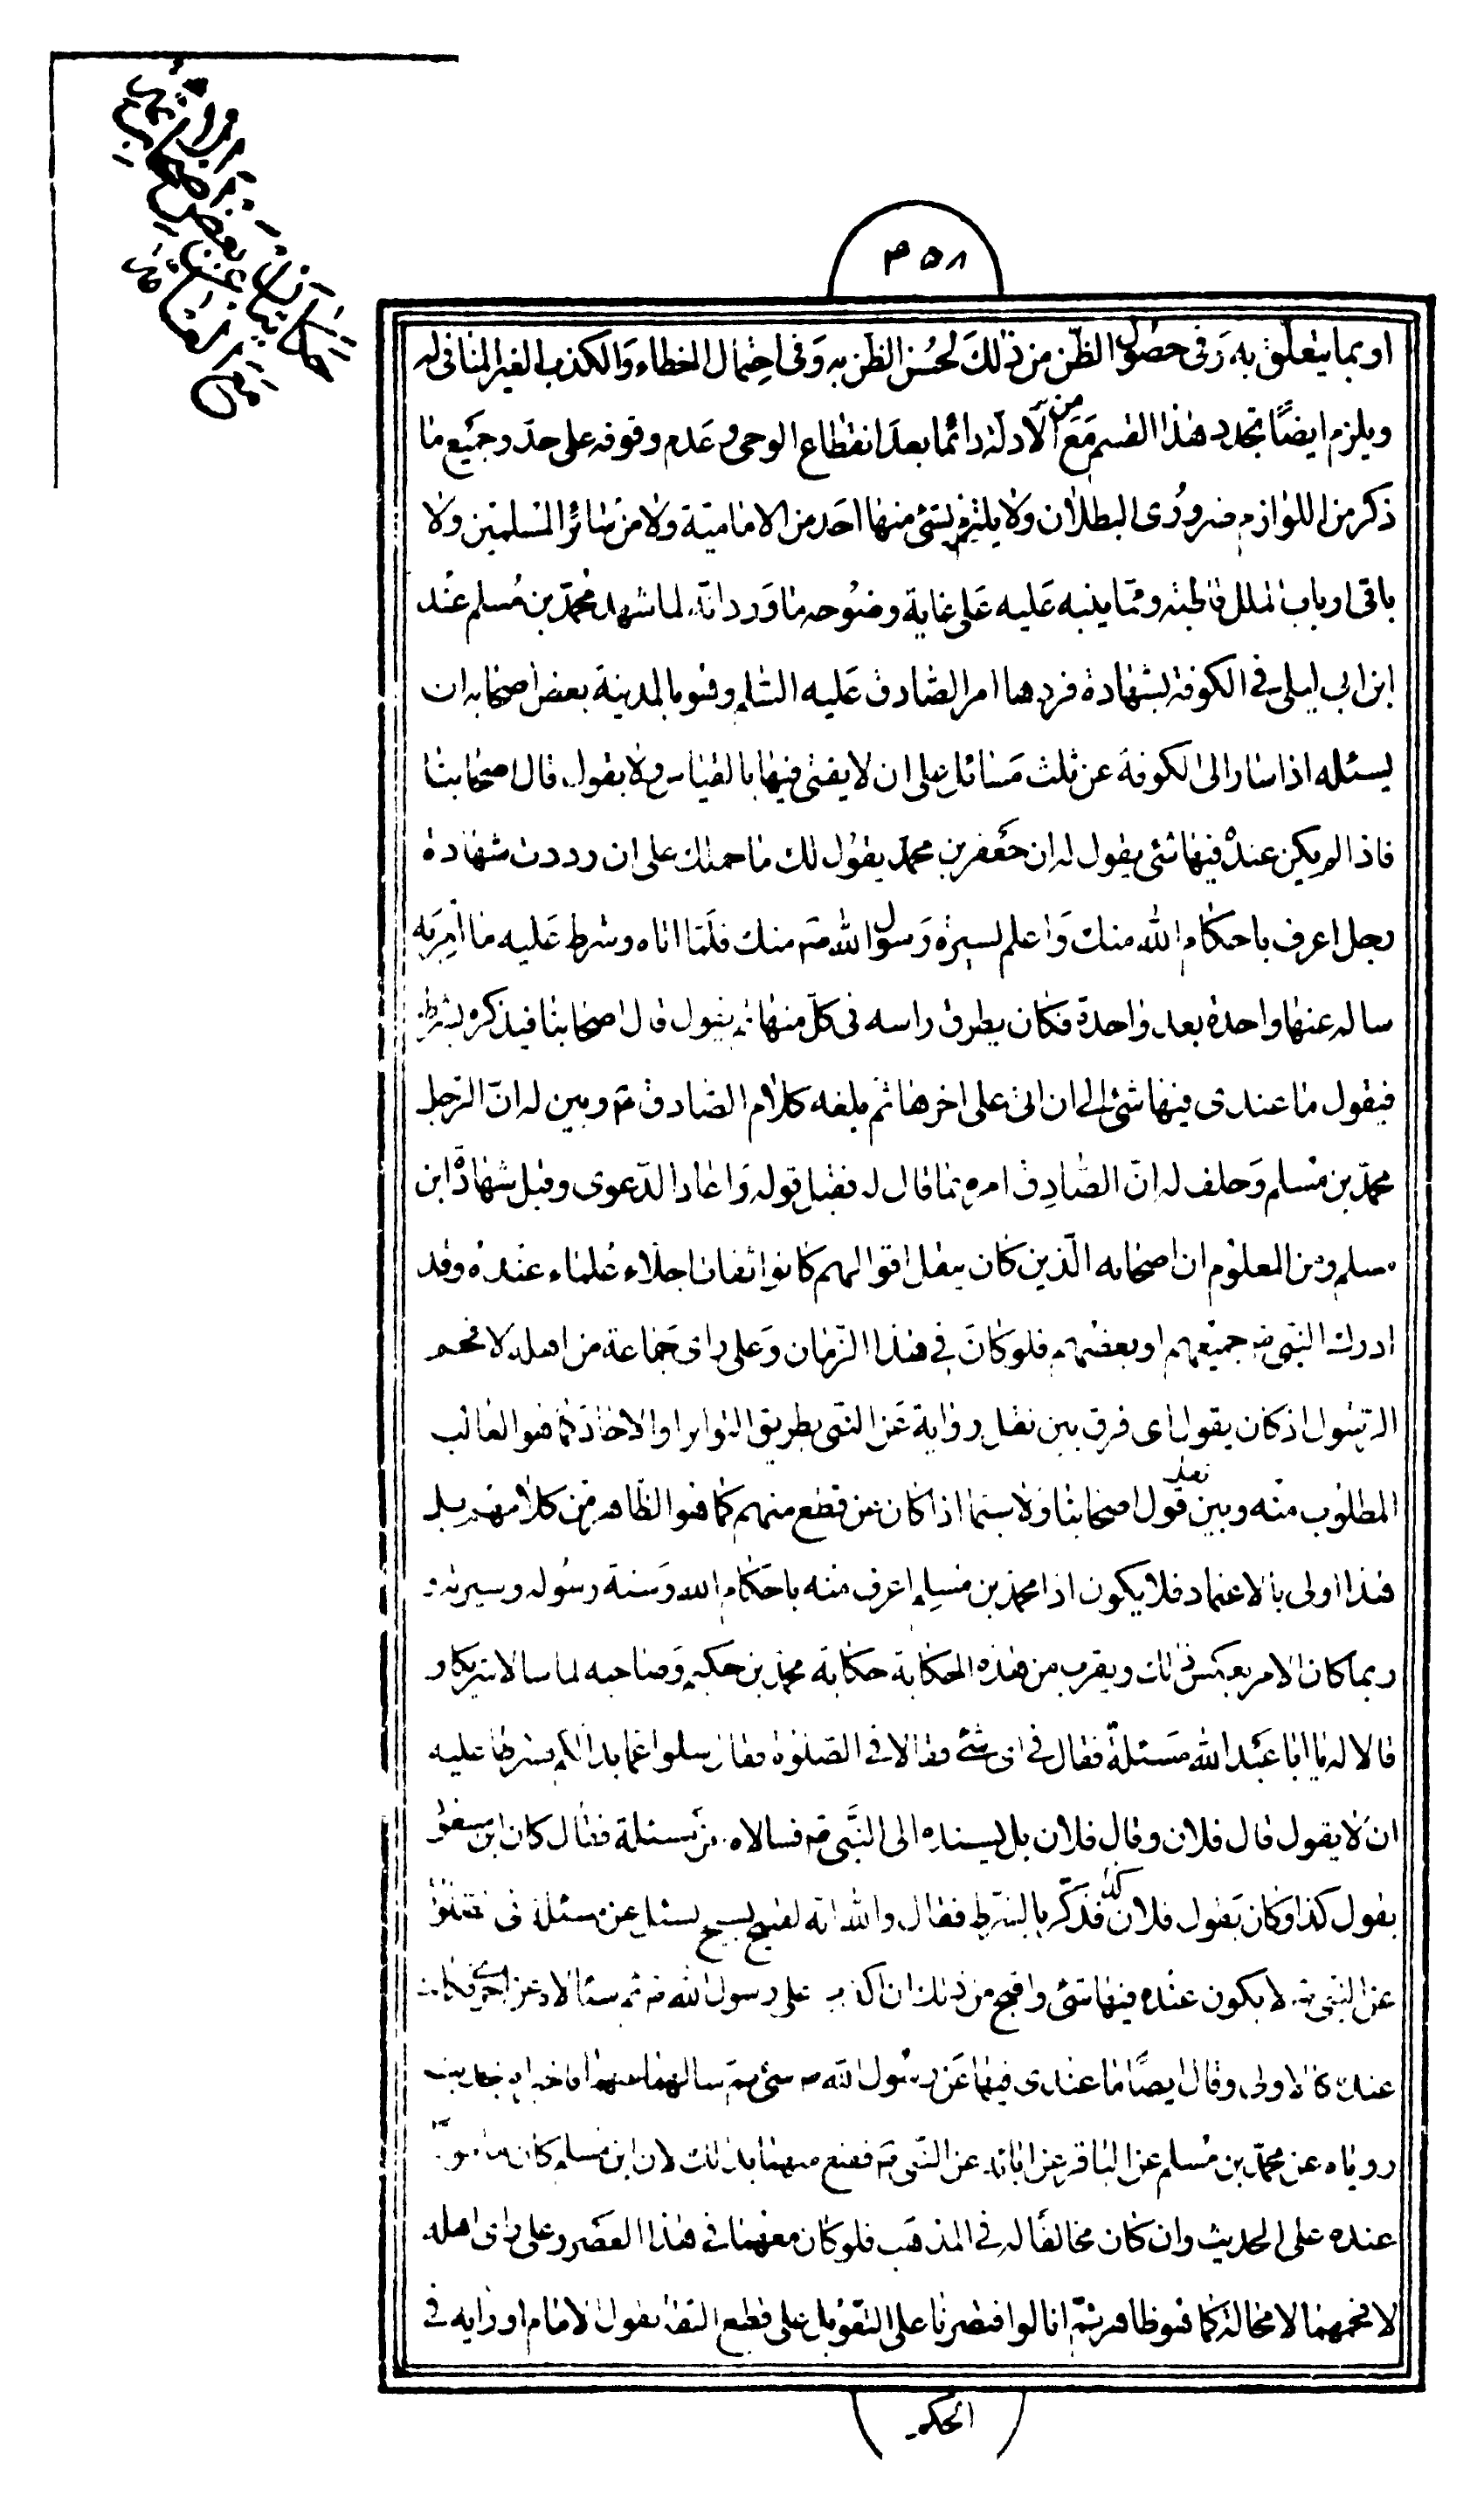 ٣٥٨
او بما يتعلّق به وَفى حصُول الظّن من ذلكَ لحُسن الظن به وَفى احتمال الخطاء وَالكذب الغير المنافى له
ويلزم ايضًا تجدد هذا القسم مَعَ من الادلّة دائمًا بعدَ انقطاع الوحى وعَدم وقوفه على حدّ وجميَع ما
ذكر من اللوازم ضرورُى البطلان ولا يلتزم بشئ منها احَد من الاماميّة ولا من سائر المسلمين ولا
باقى ارباب الملل قاطبة وممّا ينبه عَليه عَلى غاية وضوُحه ما وَرد انه لما شهد محُمّد بن مُسلم عند
ابن ابى ليلى فى الكوفة بشهادة فردها امر الصّادق عَليه السّلم وهو بالمدينة بعض اصحابه ان
يسئله اذا سار الى الكوفة عن ثلث مَسائل على ان لا يفتى فيها بالقياس ولا يقول قال اصحابنا
فاذا لم يكن عندْه فيها شئ يقول له ان جَعفر بن محمّد يقوُل لك ما حملك على ان رددت شهادة
رجل اعرف باحكام الله منك وَاعلم بسيرة رَسول الله ص منك فلَمّا اتاه وشرط عَليه ما اُمِرَ به
ساله عنها واحدة بعد واحدة فكان يطرق راسه فى كلّ منها ثم يقول قال اصحابنا فيذكره بشرطه
فيقول ما عندى فيها شئ الى ان اتى على اخرها ثم بلغه كلام الصّادق ع وبين له انّ الرّجل
محمّد بن مُسلم وَحلف له انّ الصّادِق امره بما قال له فقبل قوله وَاعاد الدّعوى وقبل شهادة ابن
مسلم ومن المعلوُم ان اصحابه الّذين كان ينقل اقوالهم كانوا ثقات اجلّاء عُلماء عنده وقد
ادرك النبّى ص جميعهم او بعضهم فلو كانَ فى هذا الزّمان وَعلى راى جَماعة من اهله لافحم
الرّسُول اذ كان يقول اى فرق بين نقل رواية عَن النبّى بطريق التواتر او الاحاد كما هو الغالب
المطلوُب منه وبين نقل قول اصحابنا وَلا سيّما اذا كان عن قطع منهم كما هو الظّاهر من كلامهم بل
هذا اولى بالاعتماد فلا يكون اذا محمّد بن مُسلِم اعرف منه باحكام الله وَسنة رسُوله وسيرته و
ربما كان الامر بعكس ذلك ويقرب من هذه الحكاية حكاية محمّد بن حَكيم وَصاحبه لما سالا شريكا و
قالا له يا ابا عَبد الله مَسئلة فقال فى اى شئ فقالا فى الصّلوة فقال سلوا عما بدا لكم فشرطا عليه
ان لا يقول قال فلان وقال فلان بل يسنده الى النَّبى ص فسالاه عن مسئلة فقال كان ابن مسعُود
يقول كذا وكان يَقول فلان كذا فذكّره بالشّرط فقال والله انه لقبيح بشيخ يسئل عن مسئلة فى الصّلوة
عن النبّى ص لا يكون عنده فيها شئ واقبح من ذلك ان اكذب على رسول الله ص ثم سئالاه عن اخرى فكانت
عنده كالاولى وقال ايضًا ما عندى فيها عَن رسُول اللّه ص شئ ثم سالهما عنهما فاخبراه بحديث
روياه عن محمّد بن مُسلم عن الباقر عن ابائه عن النّبى ص فقنع منهما بذلك لان ابن مسلم كان
عنده على الحديث وان كان مخالفًا له فى المذهَب فلو كان معهما فى هذا العَصر وعلى راى اهله
لافحمهما لا محالة كما هو ظاهر ثمّ انا لو اقتصرنا على التّعويل على قطع النقلة بقول الامام او رايه فى
الحكم